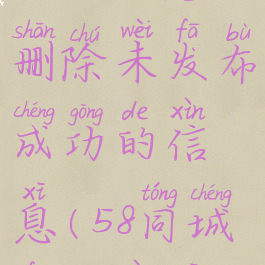 shān chú wèi fā bù
删除未发布
chéng gōng de xìn
成功的信
xī tóng chéng
息(58同城